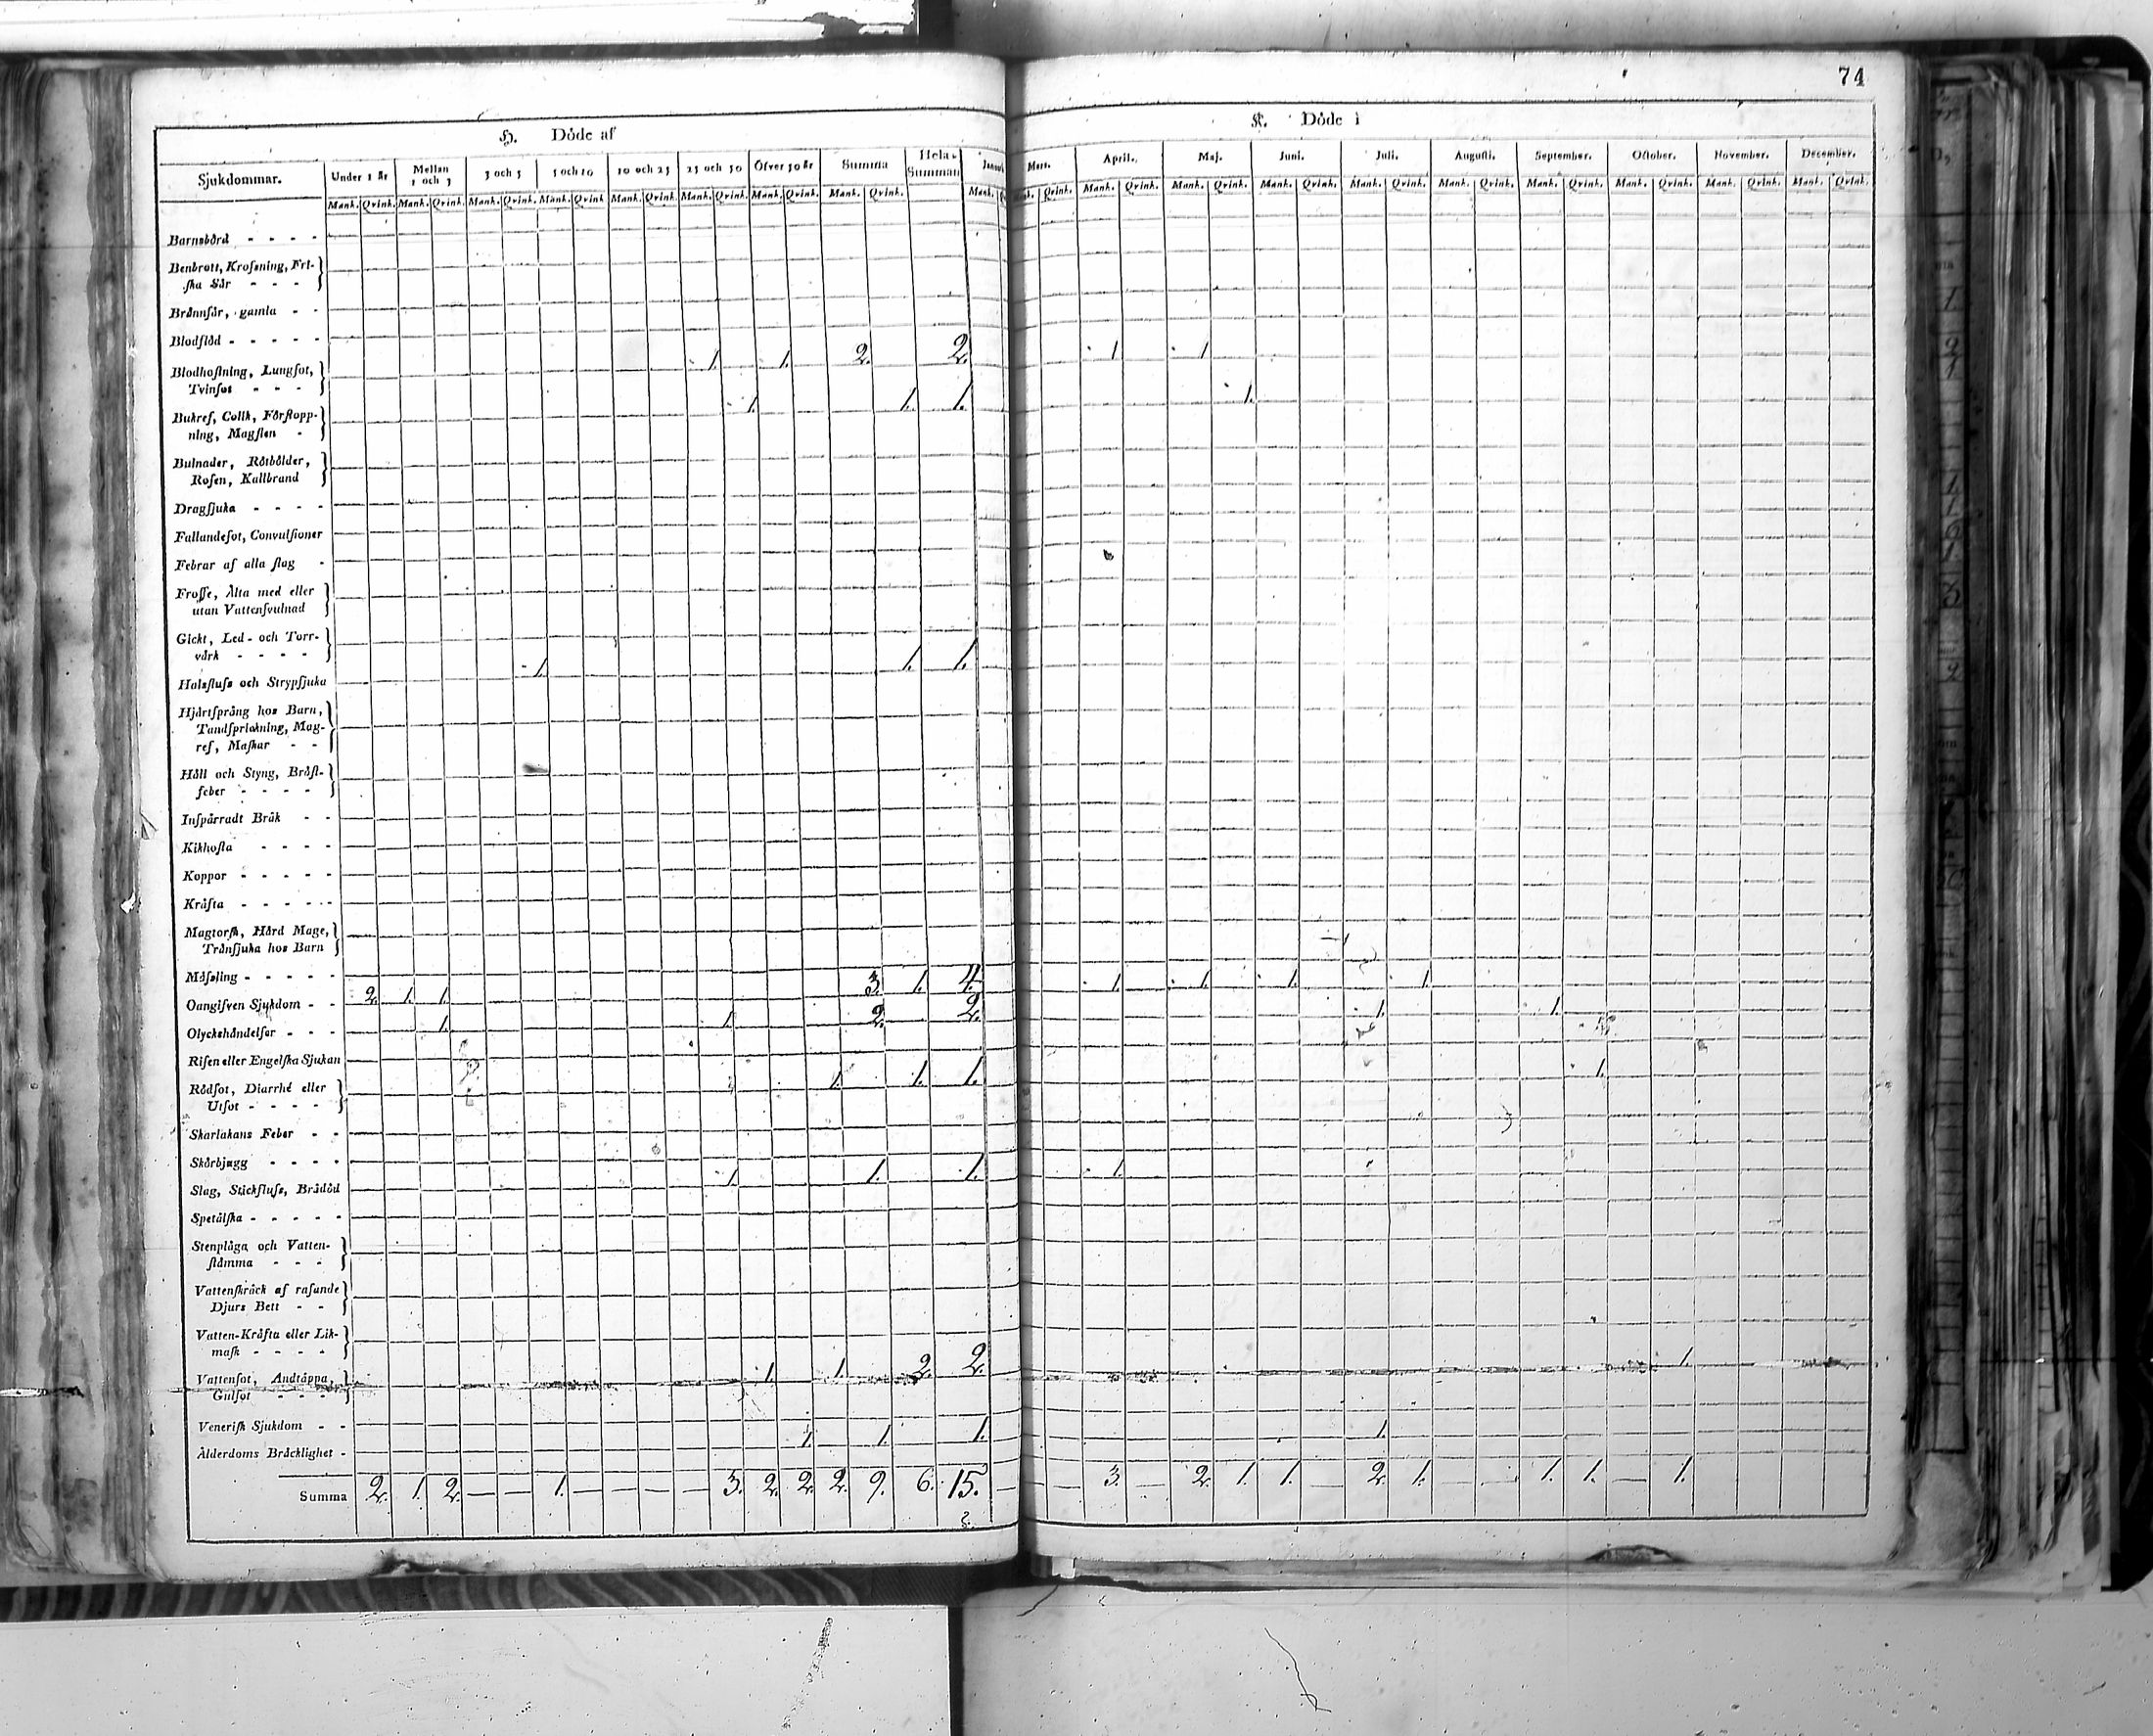 74
H. Döde af
K. Döde i
Sjukdommar. Under 1 år Mellan 1 och 3 3 och 5 5 och 10 10 och 25 25 och 50 Öfver 50 år Summa Hela Summan
Mars. April. Maj. Juni. Juli. Augusti. September. October. November. December.
Mank. Qvink. Mank. Qvink. Mank. Qvink. Mank. Qvink Mank. Qvink. Mank. Qvink. Mank. Qvink. Mank. Qvink. Mank.
Qvink. Mank. Qvink. Mank. Qvink. Mank. Qvink. Mank. Qvink. Mank. Qvink. Mank. Qvink. Mank. Qvink. Mank. Qvink. Mank. Qvink.
Barnsbörd - - - -
Benbrott, Krossning, Fri-
ska Sår - - -
Brännsår, gamla - -
Blodflöd - - - - -
Blodhostning, Lungsot, 1. 1. 2. 2. 1 1
Tvinsot - - -
Bukref, Colik, Förstopp- 1. 1. 1. 1.
ning, Magsten -
Bulnader, Rötbölder,
Rosen, Kallbrand
Dragsjuka - - - -
Fallandesot, Convulsioner
Febrar af alla slag -
Frossa, Älta med eller
utan Vattensvulnad
Gickt, Led- och Torr-
värk - - - -
Halsfluss och Strypsjuka 1. 1. 1.
Hjärtsprång hos Barn,
Tandsprickning, Mag-
ref, Maskar - -
Håll och Styng, Bröst-
feber - - - -
Inspärradt Bråk - -
Kikhosta - - - -
Koppor - - - - -
Kräfta - - - - -
Magtorsk, Hård Mage,
Tränsjuka hos Barn
Mässling - - - - -
Oangifven Sjukdom - - 2. 1. 1. 3. 1. 4. 1. 1. 1. 1.
Olyckshändelser - - - 1. 1. 2. 2. 1. 1.
Risen eller Engelska Sjukan
Rödsot, Diarrhé eller 1. 1. 1. 1.
Utsot - - - -
Skarlakans Feber - -
Skörbjugg - - - -
Slag, Stickfluss, Brådöd 1. 1. 1. 1.
Spetälska - - - - -
Stenplåga och Vatten-
stämma - - -
Vattenskräck af rasande
Djurs Bett - -
Vatten-Kräfta eller Lik-
mask - - - -
Vattensot, Andtäppa, 1. 1. 2. 2. 1.
Gulsot - - -
Venerisk Sjukdom - -
Ålderdoms Bräcklighet - 1. 1. 1. 1.
Summa 2. 1. 2. — — 1. — — — — 3. 2. 2. 2. 9. 6. 15. — — 3. — 2. 1. 1. — 2. 1. — — 1. 1. — 1.